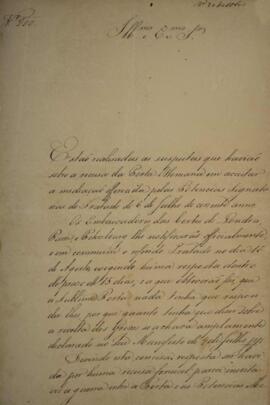 Illmo e Exmo Snr
Estão realisadas as suspeitas que havião
sobre a recusa da Porta Ottomana em acceitar
a mediação offerecida pelas Potencias Signata
rias do Tratado de 6 de Julho do corrente anno.
Os Embaixadores das Cortes de Londres,
Paris e Petersburgo lhe
em communicar o referido Tratado no dia 16
de Agosto, exigindo huma resposta dentro
do prazo de 15 dias, e a que obtiverão foi, que
a Sublime Porta nada tinha que respon
der, por que quanto tinha que dizer sobre
a revolta dos Gregos se achava amplamente
declarado no seu Manifesto de de Julho
Quando esta resposta he havi
da por huma recusa formal
a guerra entre a Porta e as Potencias